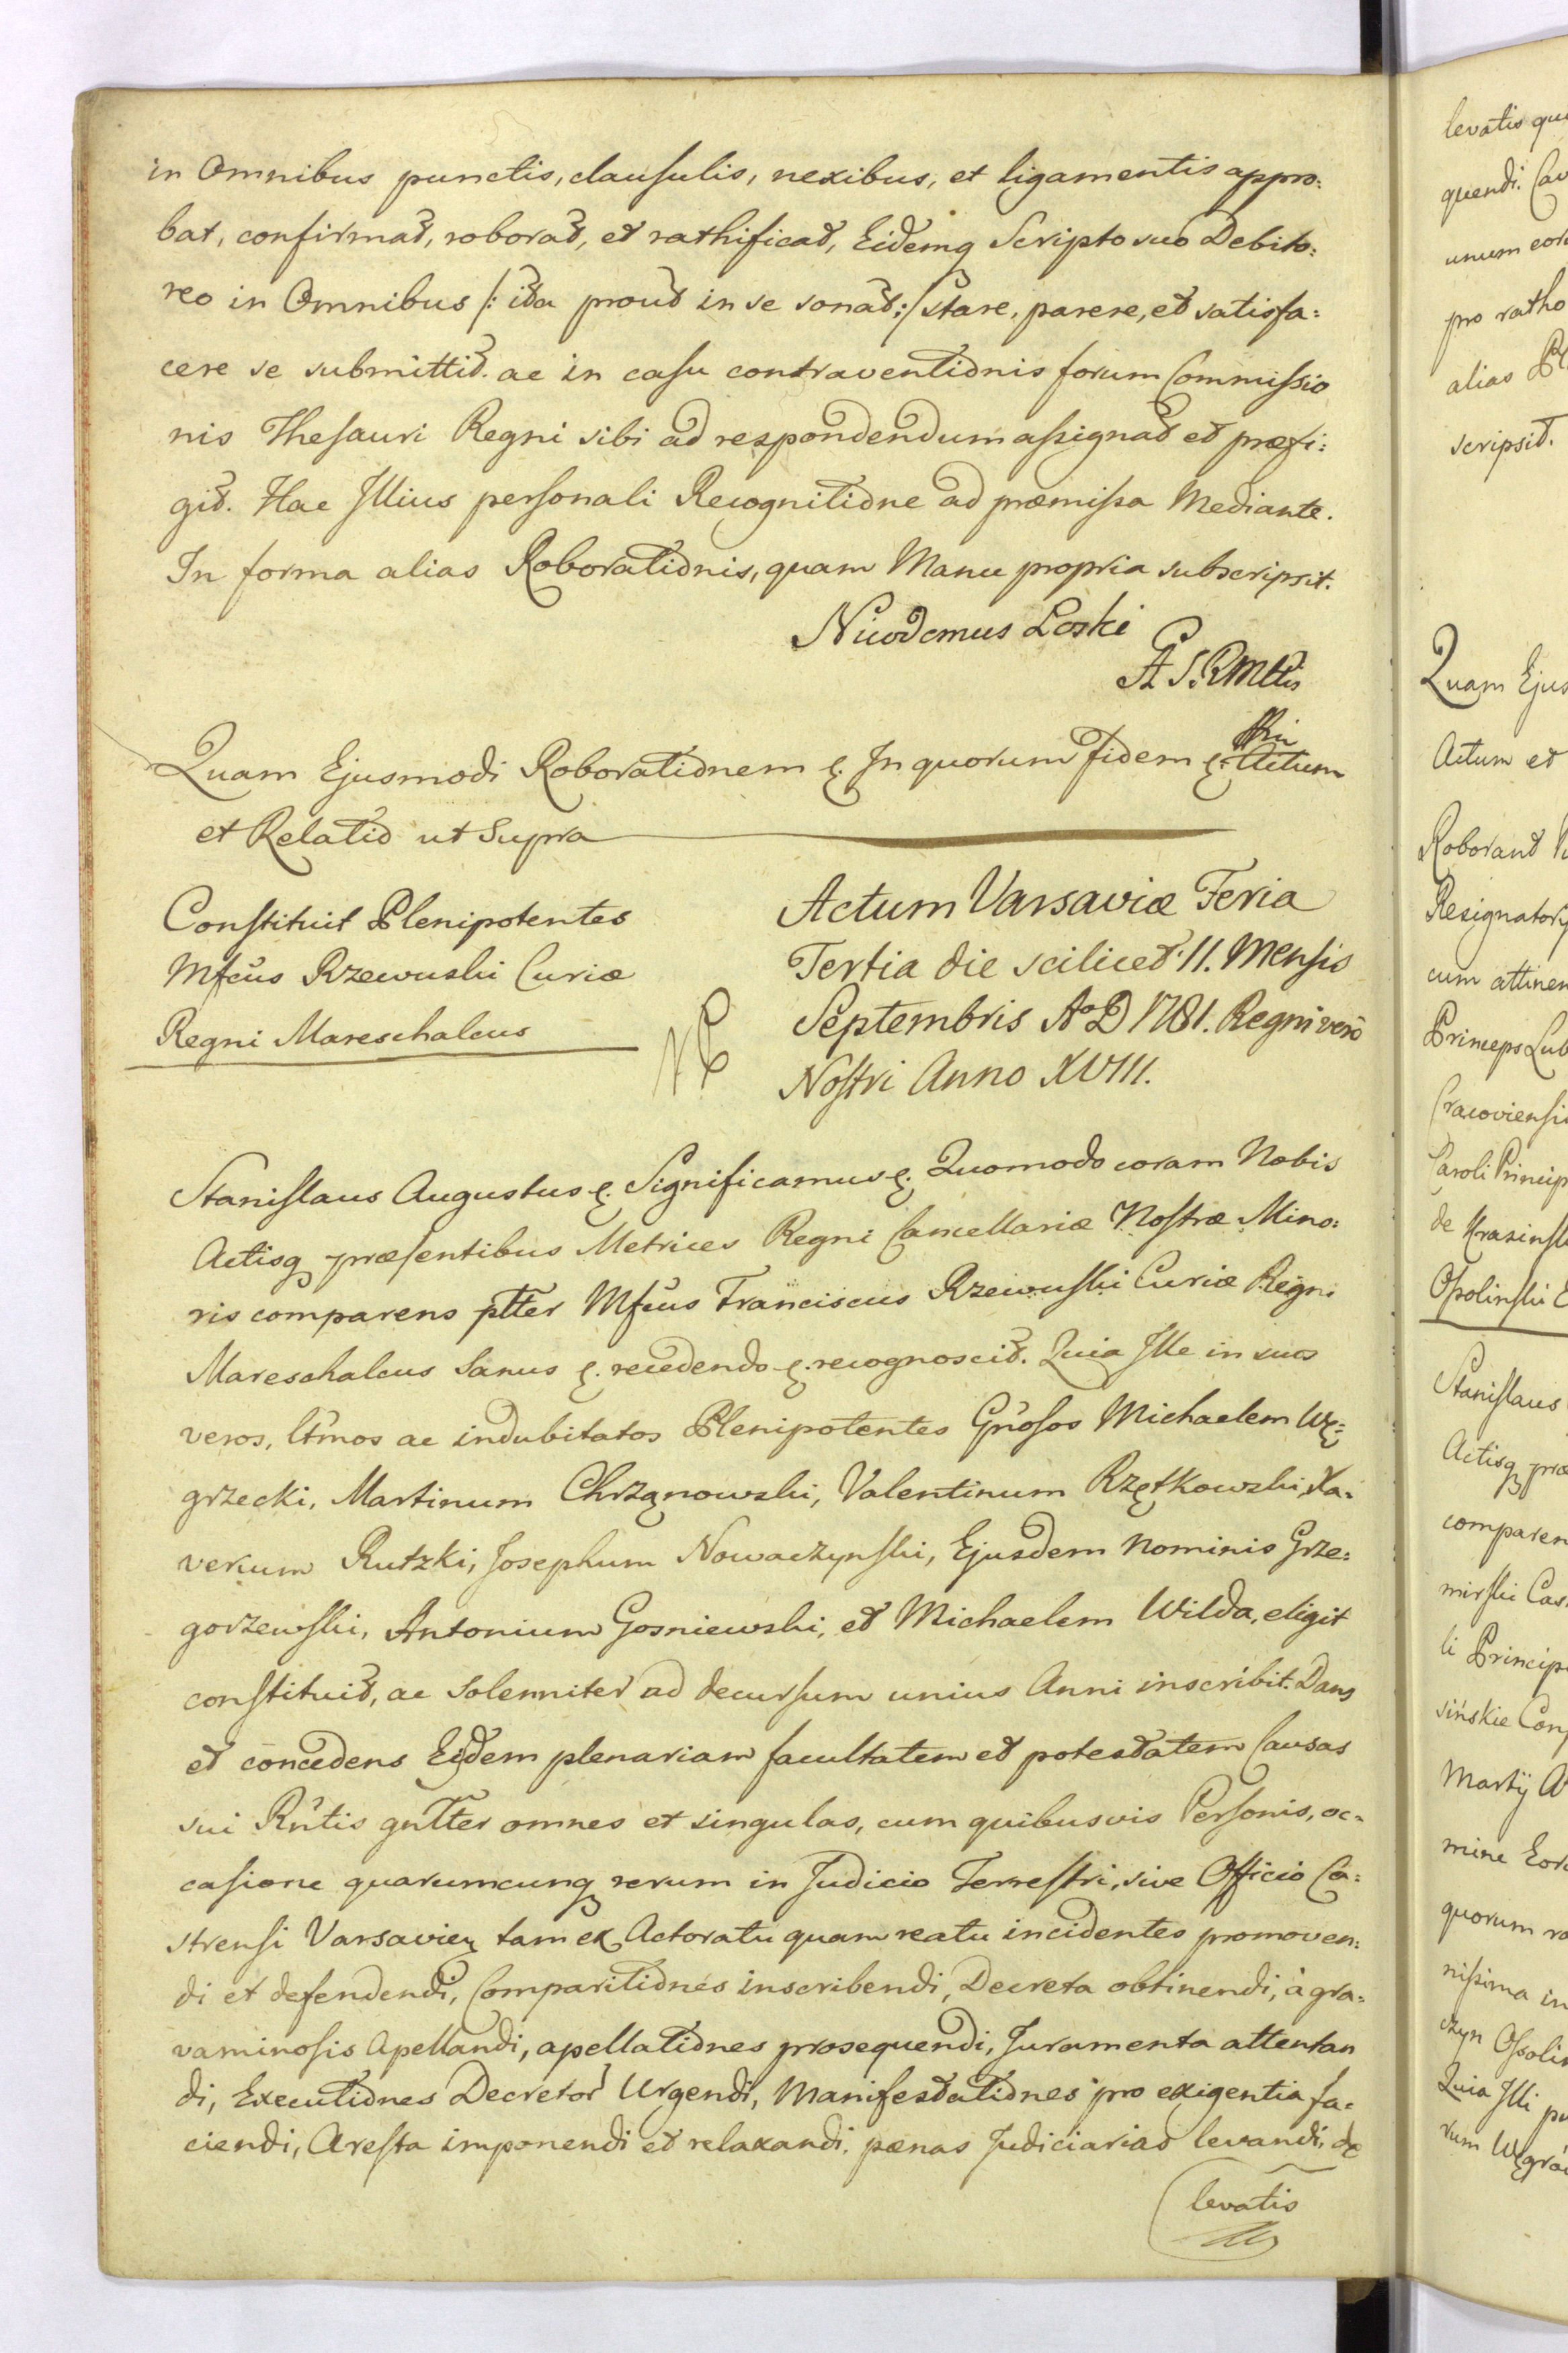 in Omnibus punctis, clausulis, nexibus, et ligamentis appro:
bat, confirmat, roborat, et rathificat, Eidemq Scripto suo Debito:
reo in Omnibus /: ita prout in se sonat :/ stare, parere, et satisfa:
cere se submittit. ac in casu contraventionis forum Commissio
nis Thesauri Regni sibi ad respondendum assignat et præfi:
git. Hac Illius personali Recognitione ad præmissa Mediante.
In forma alias Roborationis, quam Manu propria subscripsit.
Nicodemus Loski
Quam Ejusmodi Roborationem &. In quorum fidem &. Actum
et Relatio ut Supra
Constituit Plenipotentes
Mfcus Rzewuski Curiæ
Regni Mareschalcus
Actum Varsaviæ Feria
Tertia die scilicet 11. Mensis
Septembris Ao D 1781. Regni vero
Nostri Anno XVIII.
Stanislaus Augustus &. Significamus &. Quomodo coram Nobis
Actisq præsentibus Metrices Regni Cancellariæ Nostræ Mino:
ris comparens ptter Mfcus Franciscus Rzewuski Curiæ Regni
Mareschalcus Sanus &. recedendo &. recognoscit. Quia Ille in suos
veros, ltmos ac indubitatos Plenipotentes Gnosos Michaelem Wę:
grzecki, Martinum Chrząnowski, Valentinum Rzętkowski, Xa:
verium Rutzki, Josephum Nowaczynski, Ejusdem Nominis Grze:
gorzewski, Antonium Gosniewski, et Michaelem Wilda, eligit
constituit, ac Solenniter ad decursum unius Anni inscribit. Dans
et concedens Eijdem plenariam facultatem et potestatem Causas
sui Rntis gntter omnes et singulas, cum quibusvis Personis, oc:
casione quarumcunq rerum in Judicio Terrestri, sive Officio Ca:
strensi Varsavien tam ex Actoratu quam reatu incidentes promoven:
di et defendendi, Comparitiones inscribendi, Decreta obtinendi, à gra:
vaminosis Apellandi, apellationes prosequendi, Juramenta attentan
di, Executiones Decretor Urgendi, Manifestationes pro exigentia fa:
ciendi, Aresta imponendi et relaxandi, pænas Judiciarias levandi, de
levatis
levatis
quendi. Cav
unum
pro ratho
alias
scripsit.
Quam Ejus
Actum et
Roborant
Resignatory
cum attinen
Princeps Lub
Cracoviensi
Caroli Princip
de Krasinsk
Stanislaus
Actisq præ
comparen
mirski Cas
li Princip
sińskie Con
Martij
mine
quorum
nissima in
Quia Illi